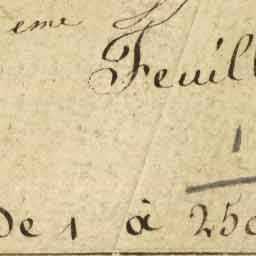 eme
Feuill
1
De 1 à 250